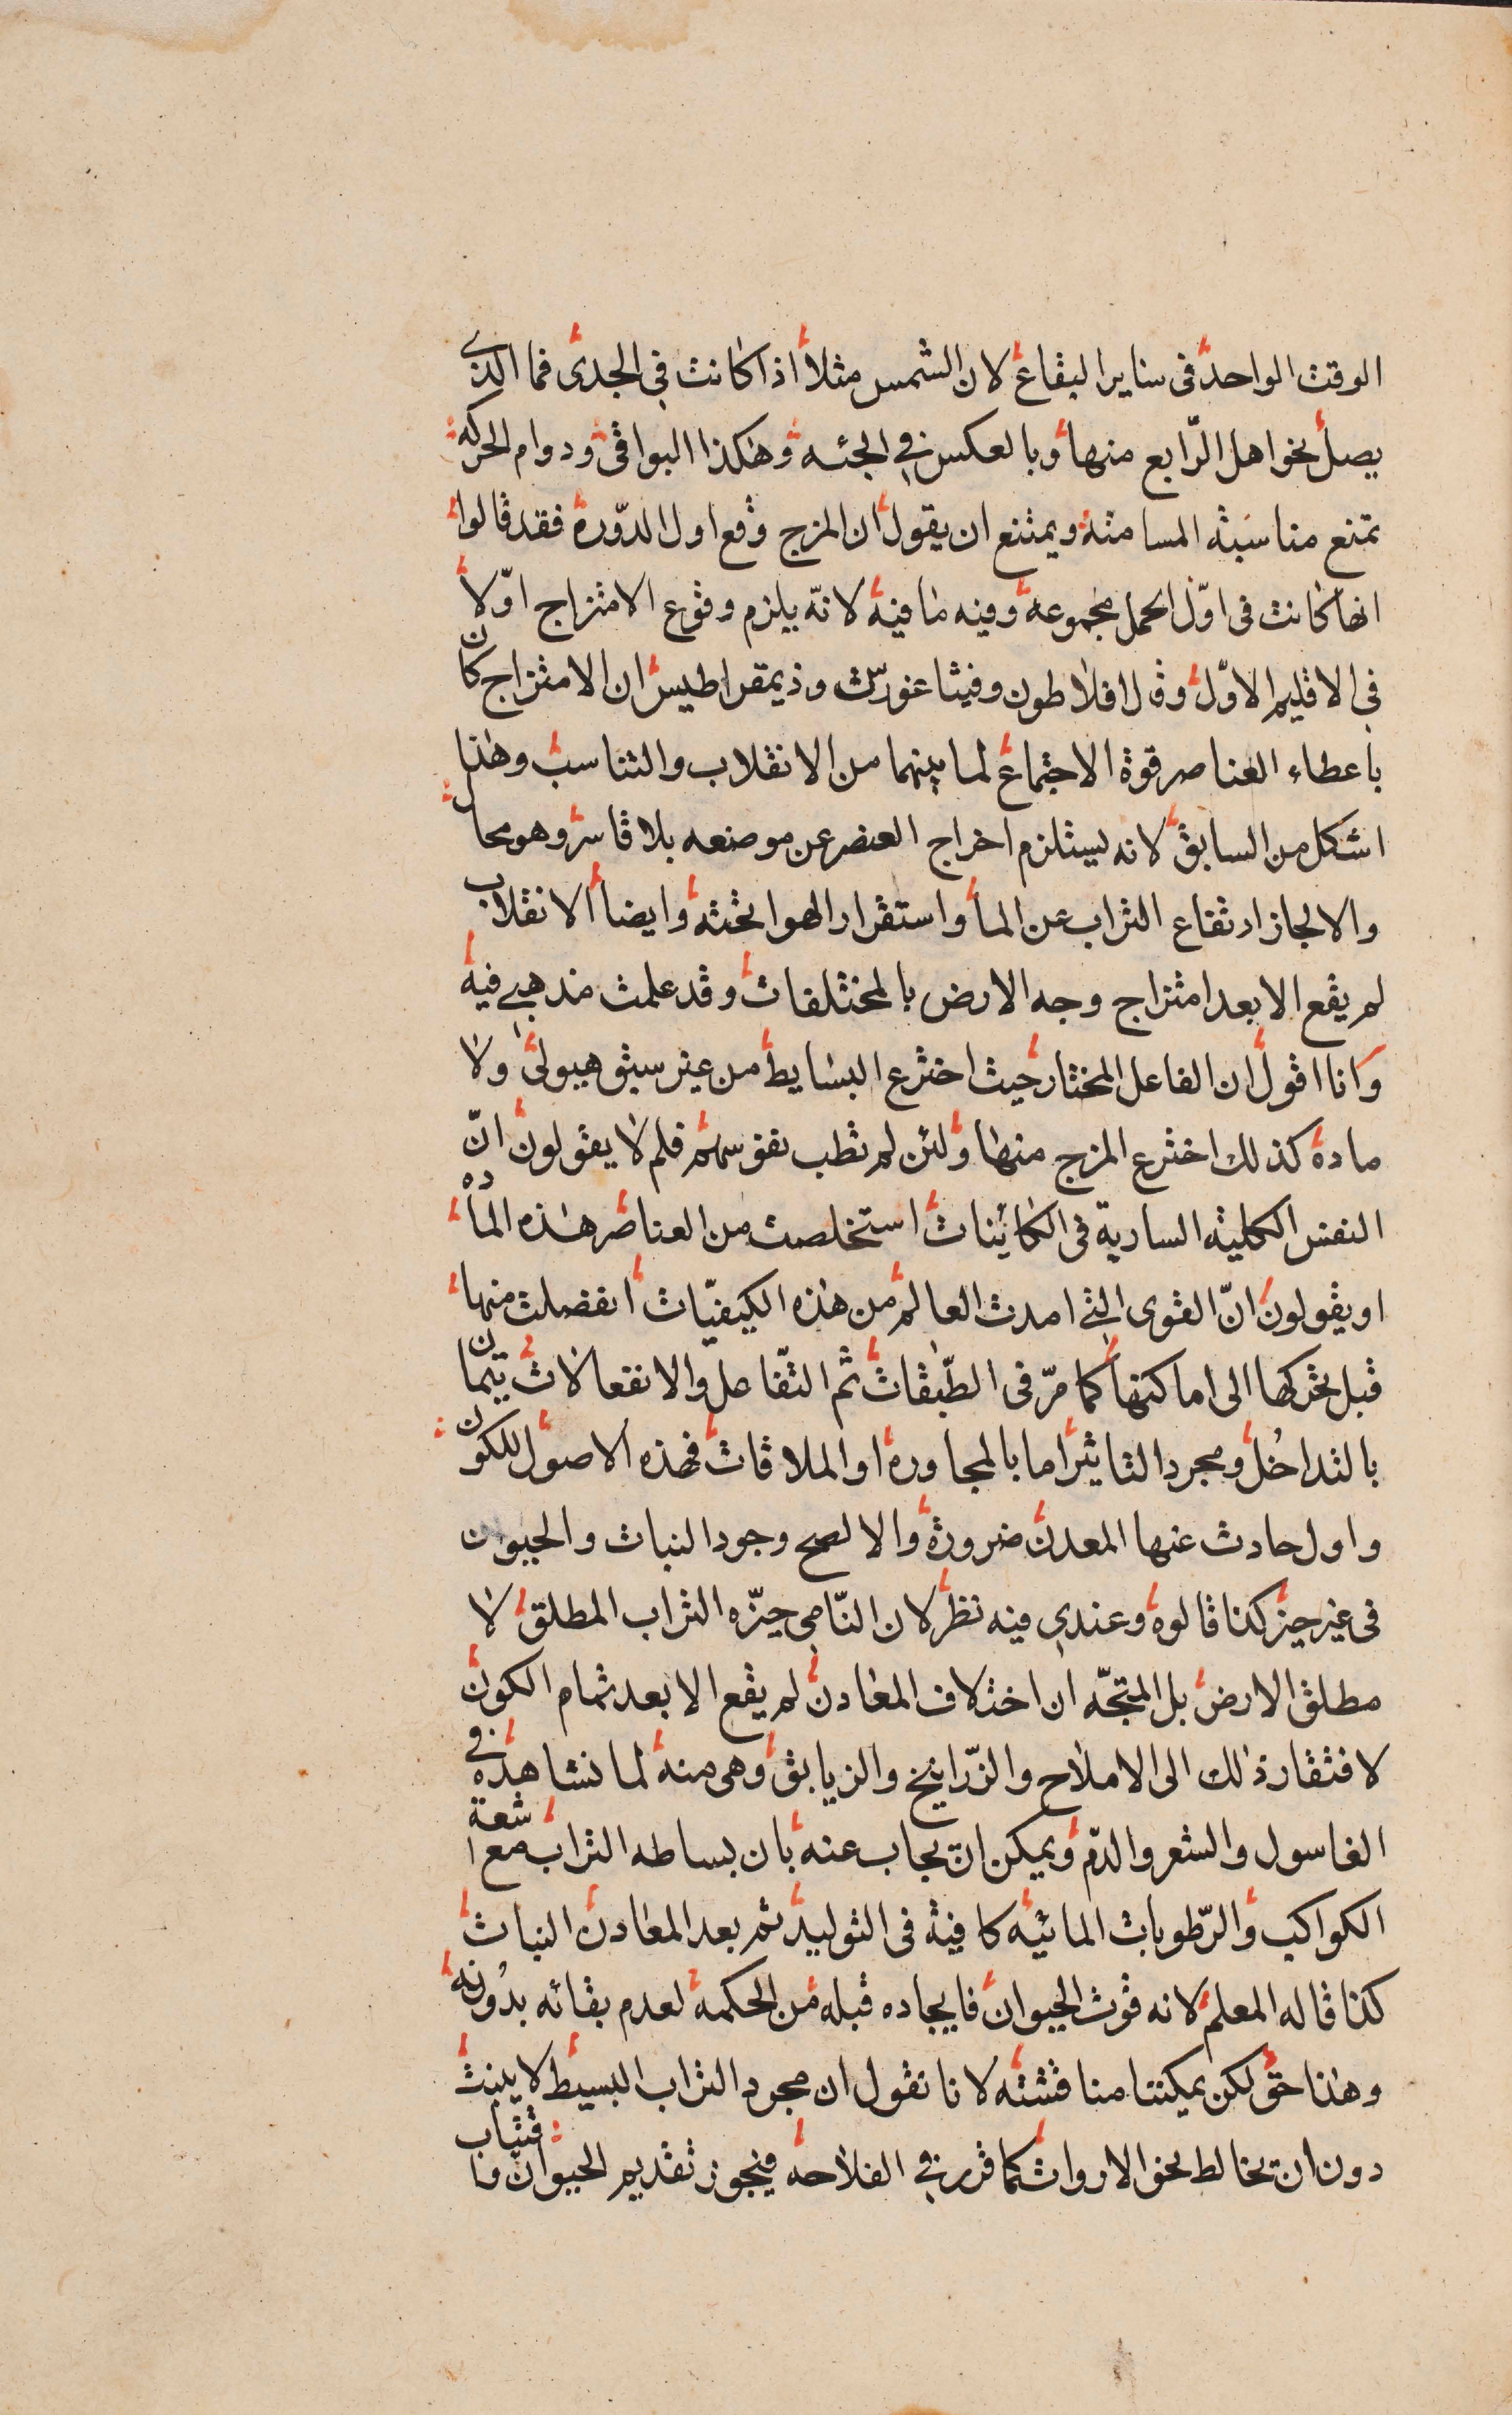 الوقت الواحد فى ساير البقاع لان الشمس مثلا اذا كانت فى الجدى فما الذى
يصل نحو اهل الرّابع منها وبالعكس فى الجثه وهكذا البواقى ودوام الحركه
تمنع مناسَبته المسامته ويمتنع ان يقول ان المزج وقع اول الدّورة فقد قالوا
انها كانت فى اوّل الحمل مجموعة وفيه ما فيه لانّه يلزم وقوع الامتزاج اوّلا
فى الاقليم الاوّل وقال افلاطون وفيثاغورس وذيمقراطيس ان الامتزاج كان
باعطاء العناصر قوة الاجتماع لما بينهما من الانقلاب والتناسب وهذا
اشكل من السابق لانه يستلزم اخراج العنصر عن موضعه بلا قاسر وهو محال
والا لجاز ارتفاع التراب عن الماء واستقرار الهوا تحته وايضا الانقلاب
لم يقع الا بعد امتزاج وجه الارض بالمختلفات وقد علمت مذهبى فيه
وانا اقول ان الفاعل المختار حيث اخترع البسايط من غير سبق هيولى ولا
مادة كذلك اخترع المزج منها ولئن لم تطب نفوسهم فلم لا يقولون انّ
النفس الكليه السارية فى الكائنات استخلصت من العناصر هذه المادة
او يقولون انّ القوى التى امدت العالم من هذه الكيفيّات انفصلت منها
قبل تحركها الى اماكنها كما مرّ فى الطّبقات ثم التّفاعل والانفعالات يتمان
بالتداخُل ومجرد التاثير اما بالمجاورة او الملاقات فهذه الاصول للكون
واول حادث عنها المعدن ضرورة والا لصح وجود النبات والحيوان
فى غير حيز كذا قالوه وعندى فيه نظر لان النّامى حيّزه التراب المطلق لا
مطلق الارض بل المتجّه ان اختلاف المعادن لم يقع الا بعد تمام الكون
لافتقار ذلك الى الاملاح والزّرانيخ والزيابق وهى منه لما نشاهده فى
الغاسول والشعر والدّم ويمكن ان يجاب عنه بان بساطه التراب مع اشعة
الكواكب والرّطوبات المائيه كافية فى التوليد ثم بعد المعادن النبات
كذا قاله المعلم لانه قوت الحيوان فايجاده قبله من الحكمة لعدم بقائه بدُونه
وهذا حق لكن يمكننا مناقشته لانا نقول ان مجرد التراب البسيط لا ينبت
دون ان يخالط نحو الاروات كما قرر فى الفلاحه فيجوز تقديم الحيوان واقتيات